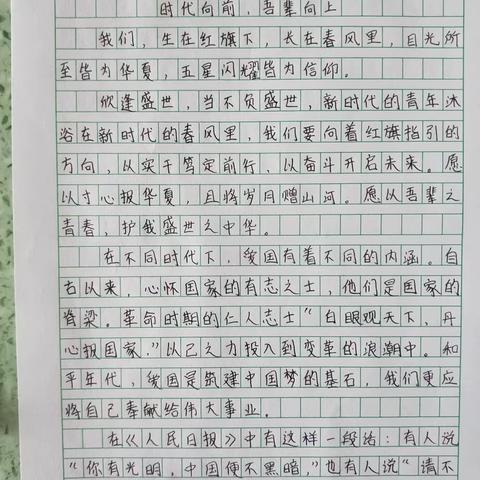 时代向前，吾辈向上
我们，生在红旗下，长在春风里，目光所
至皆为华夏，五星闪耀皆为信仰。
欣逢盛世，当不负盛世，新时代的青年沐
浴在新时代的春风里，我们要向着红旗指引的
方向，以实干笃定前行，以奋斗开启未来。愿
以寸心报华夏，且将岁月赠山河。愿以吾辈之
青春，护我盛世之中华。
在不同时代下，爱国有着不同的内涵。自
古以来，心怀国家的有志之士，他们是国家的
脊梁。革命时期的仁人志士“白眼观天下，丹
心报国家，”以己之力投入到变革的浪潮中。和
平年代，爱国是筑建中国梦的基石，我们更应
将自己奉献给伟大事业。
在《人民日报》中有这样一段话：有人说
“你有光明，中国便不黑暗，”也有人说“请不